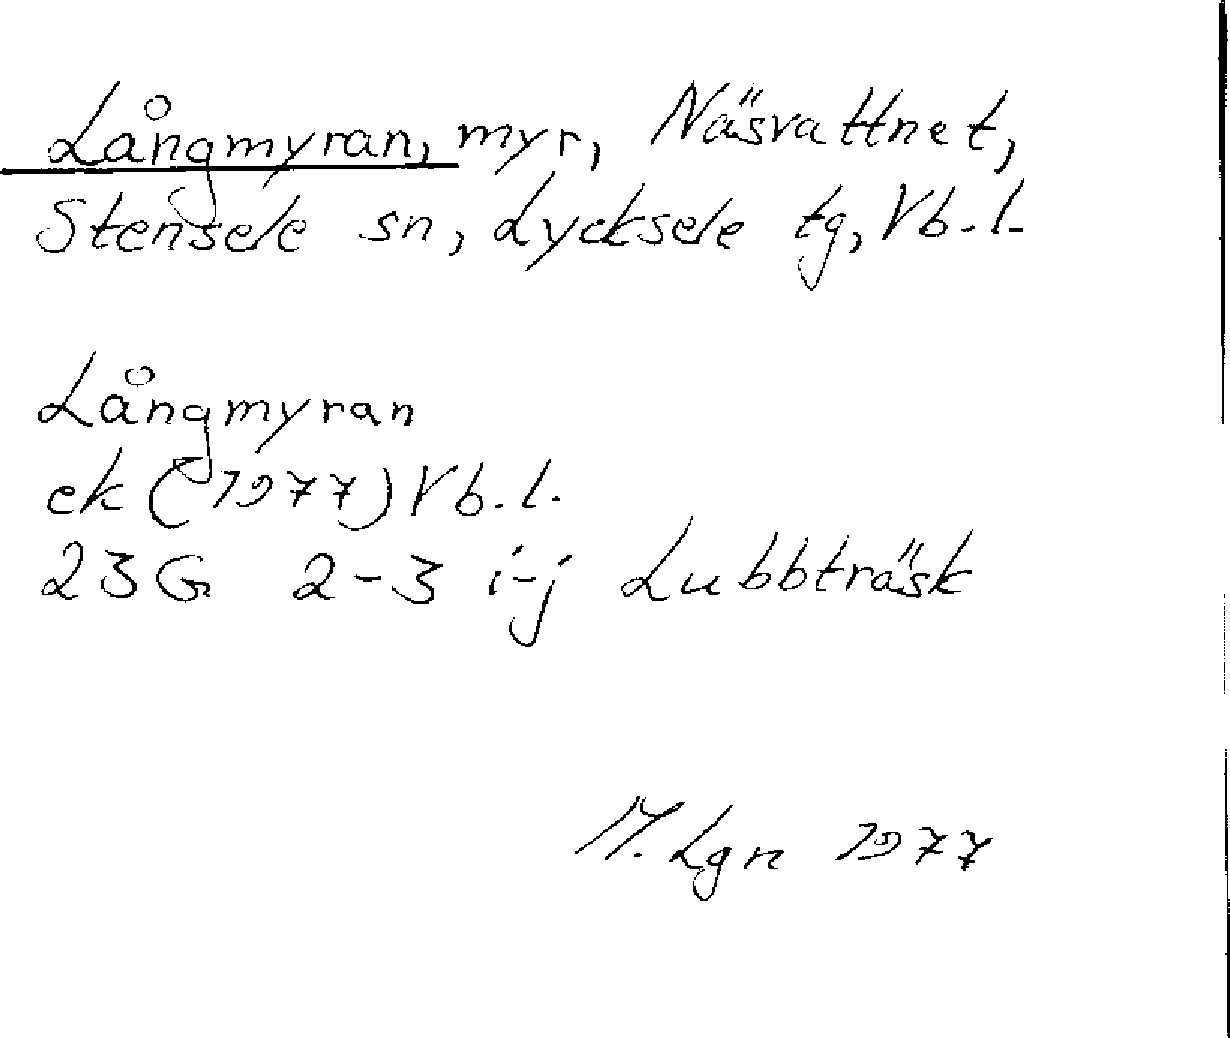 Långmyran, myr, Näsvattnet,
Stensele sn, Lycksele tg, Vb.l.
Långmyran
ek (1977) Vb.l.
23G 2-3 i-j Lubbträsk
M. Lgn 1977